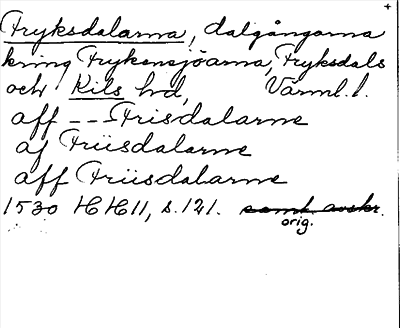 Fryksdalarna, dalgångarna
kring Frykensjöarna, Fryksdals
och Kils hd, Värml. l.
aff - - - Frisdalarne
af Friisdalarne
aff Friisdalarne
1530 HH 11, s. 121. saml. avskr.
orig.